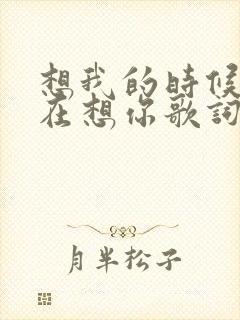 想我的時候
在想你歌詞
月半松子